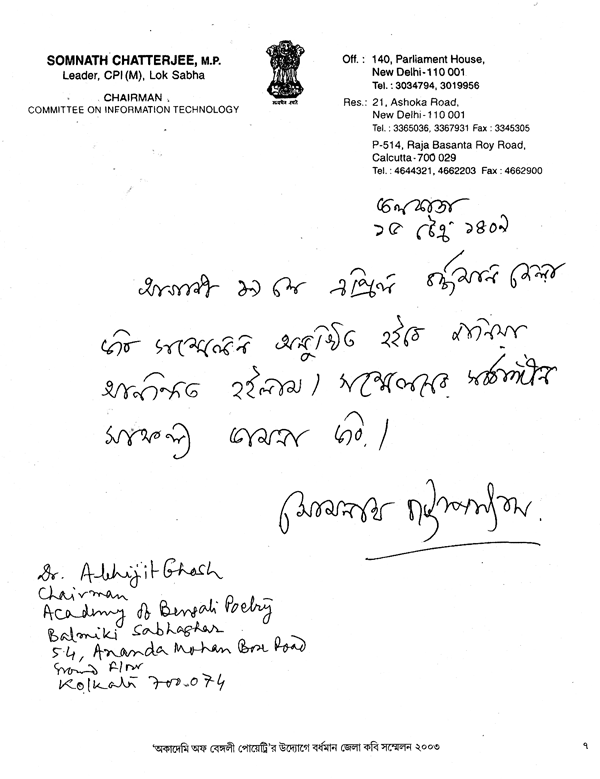 SOMNATH CHATTERJEE, M.P.
Leader, CPI (M), Lok Sabha
CHAIRMAN
COMMITTEE ON INFORMATION TECHNOLOGY
Off. : 140, Parliament House,
New Delhi-110 001
Tel. : 3034794, 3019956
Res.: 21, Ashoka Road,
New Delhi-110 001
Tel. : 3365036, 3367931 Fax : 3345305
P-514, Raja Basanta Roy Road,
Calcutta-700 029
Tel. : 4644321, 4662203 Fax : 4662900
কলকাতা
১৫ চৈত্র ১৪০৯
আগামী এপ্রিল বর্দ্ধমান জেলা
কবি সম্মেলন অনুষ্ঠিত হইবে জানিয়া
আনন্দিত হইলাম। সম্মেলনের সর্বাঙ্গীন
সাফল্য কামনা করি।
সোমনাথ চট্টোপাধ্যায়
Dr. Abhijit Ghosh
Chairman
Academy of Bengali Poetry
Balmiki Sabhaghar
54, Ananda Mohan Bose Road
Ground Floor
Kolkata 700-074
'অকাদেমি অফ বেঙ্গলী পোয়েট্রি'র উদ্যোগে বর্ধমান জেলা কবি সম্মেলন ২০০৩
৭